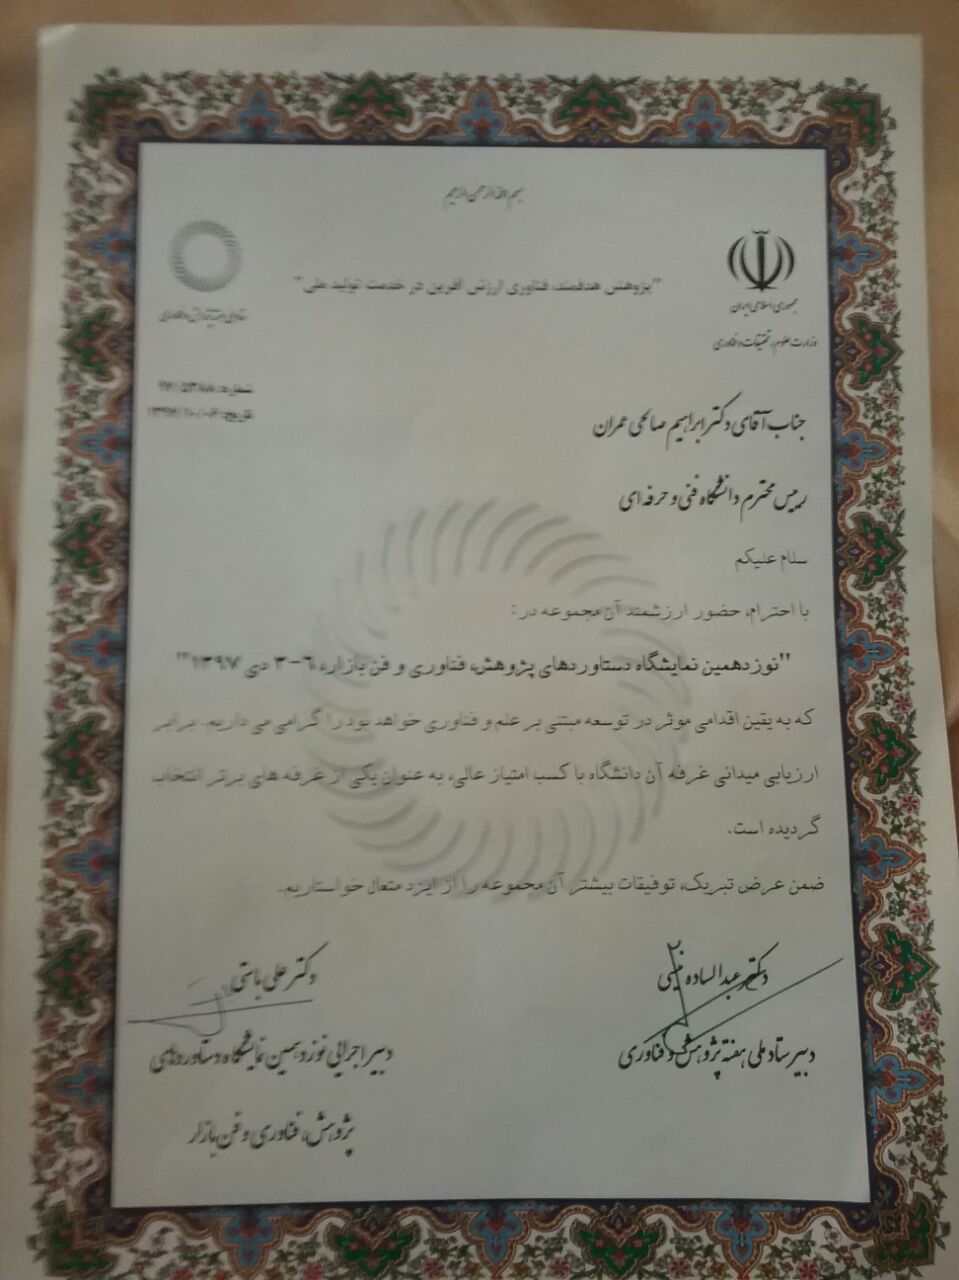 بسم الله الرحمن الرحیم
جمهوری اسلامی ایران
وزارت علوم، تحقیقات و فناوری
"پژوهش هدفمند، فناوری ارزش آفرین در خدمت تولید ملی"
شماره:
تاریخ:
جناب آقای دکتر ابراهیم صالحی عمران
رییس محترم دانشگاه فنی و حرفه ای
سلام علیکم
با احترام، حضور ارزشمند آن مجموعه در:
"نوزدهمین نمایشگاه دستاوردهای پژوهش، فناوری و فن بازار، ۶-۳ دی ۱۳۹۷"
که به یقین اقدامی موثر در توسعه مبتنی بر علم و فناوری خواهد بود را گرامی می داریم. برابر
ارزیابی میدانی غرفه آن دانشگاه با کسب امتیاز عالی، به عنوان یکی از غرفه های برتر انتخاب
گردیده است.
ضمن عرض تبریک، توفیقات بیشتر آن مجموعه را از ایزد متعال خواستاریم.
دکتر عبدالساده نیسی
دبیر ستاد ملی هفته پژوهش و فناوری
دکتر علی باستی
دبیر اجرایی نوزدهمین نمایشگاه دستاوردهای
پژوهش، فناوری و فن بازار